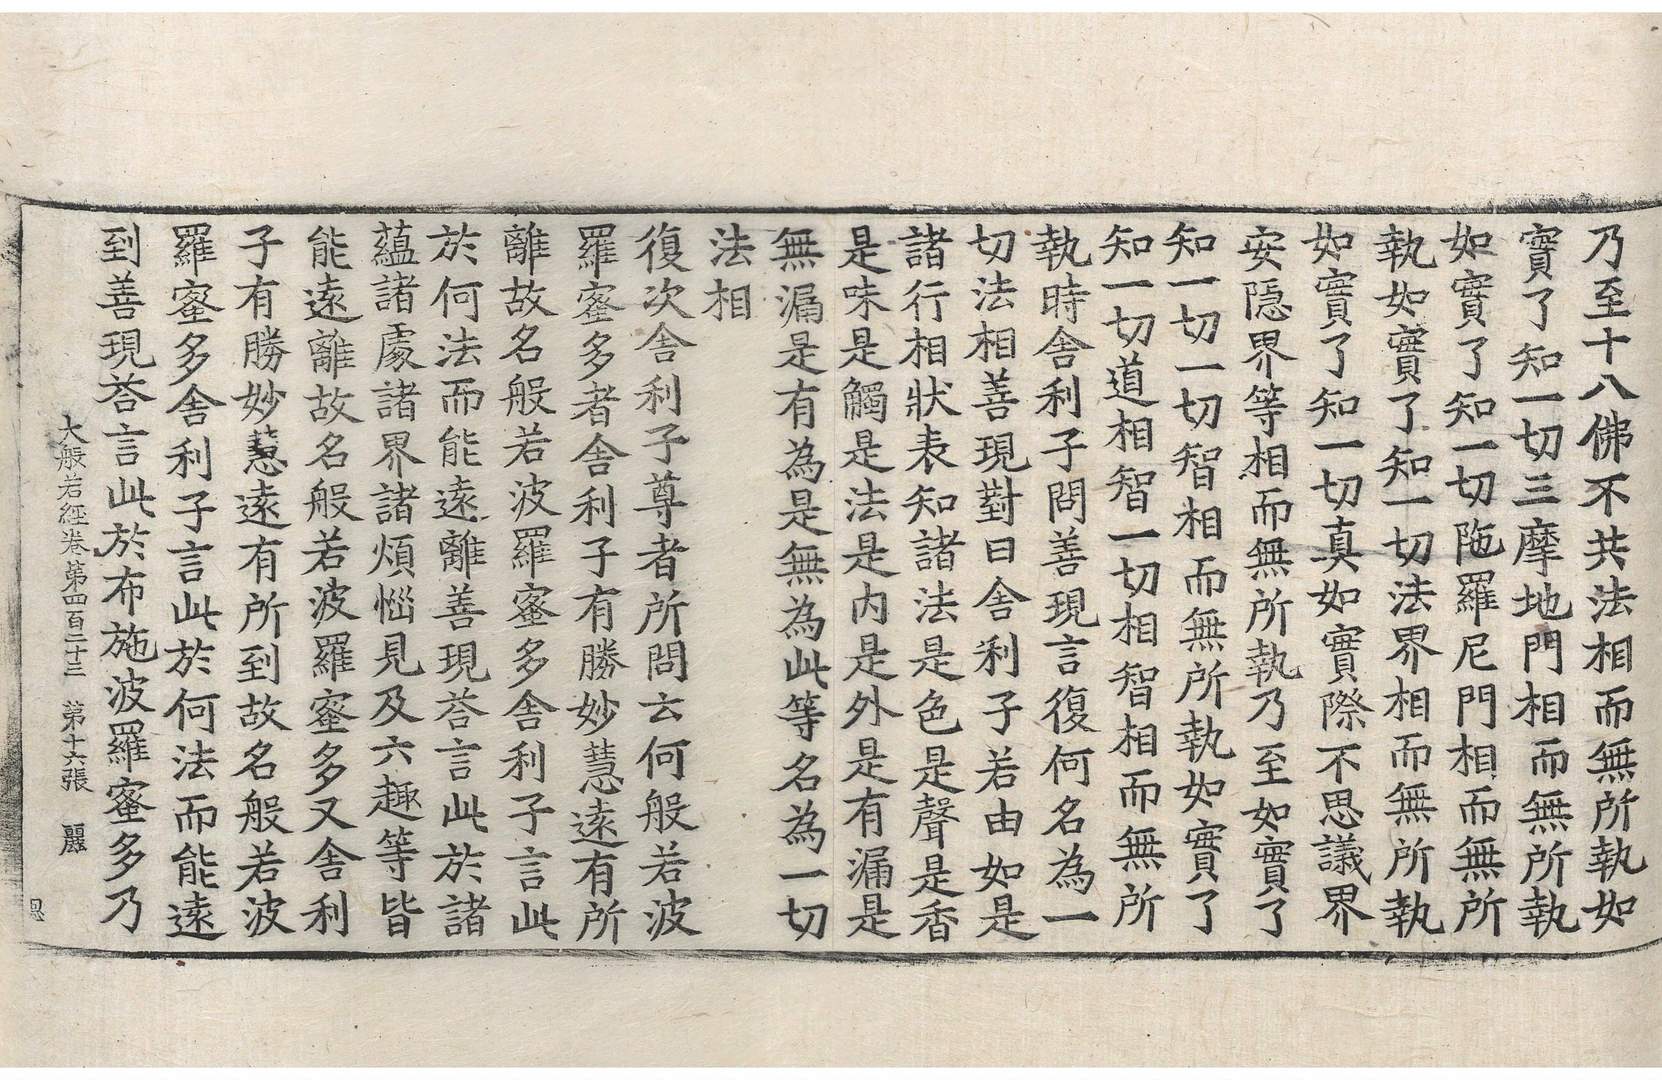 乃至十八佛不共法相而無所執如
實了知一切三摩地門相而無所執
如實了知一切陁羅尼門相而無所
執如實了知一切法界相而無所執
如實了知一切真如實際不思議界
安隱界等相而無所執乃至如實了
知一切一切智相而無所執如實了
知一切道相智一切相智相而無所
執時舍利子問善現言復何名為一
切法相善現對曰舍利子若由如是
諸行相狀表知諸法是色是聲是香
是味是觸是法是内是外是有漏是
無漏是有為是無為此等名為一切
法相
復次舍利子尊者所問云何般若波
羅蜜多者舍利子有勝妙慧遠有所
離故名般若波羅蜜多舍利子言此
於何法而能遠離善現荅言此於諸
蘊諸處諸界諸煩惱見及六趣等皆
能遠離故名般若波羅蜜多又舍利
子有勝妙慧遠有所到故名般若波
羅蜜多舍利子言此於何法而能遠
到善現荅言此於布施波羅蜜多乃
大般若經卷第四百二十三 第十六張 麗